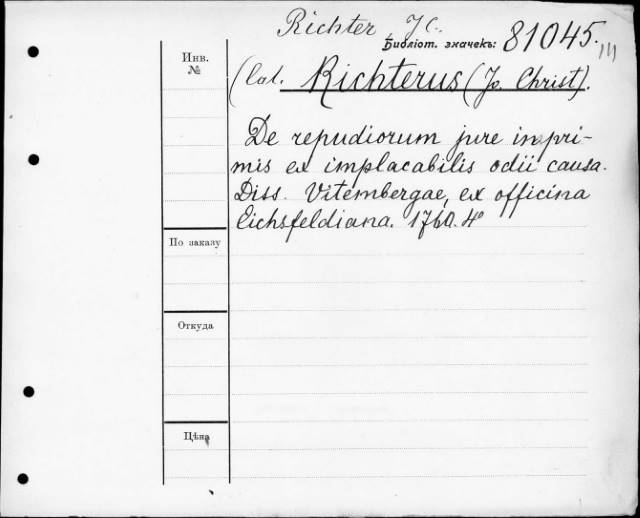 Richter, J C.
Библіот. значекъ: 81045.
Инв.
№
(Lat. Richterus (Jo. Christ).
De repudiorum jure inpri-
mis ex implacabilis odii causa.
Diss. Vitembergae, ex officina
Eichsfeldiana. 1760. 4°
По заказу
Откуда
Цѣна